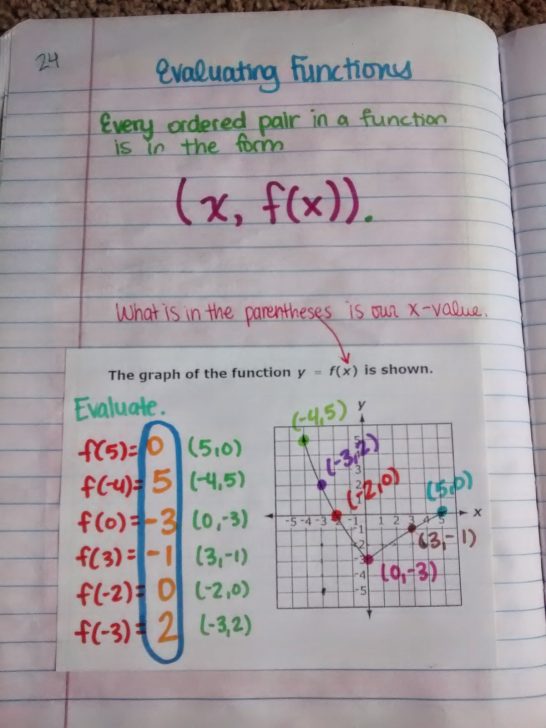 24
Evaluating Functions
Every ordered pair in a function
is in the form
(x, f(x)).
What is in the parentheses is our x-value.
The graph of the function y = f(x) is shown.
Evaluate.
f(5)= 0 (5,0)
f(-4)= 5 (-4,5)
f(0)= -3 (0,-3)
f(3)= -1 (3,-1)
f(-2)= 0 (-2,0)
f(-3)= 2 (-3,2)
y
(-4,5)
(-3,2)
(-2,0)
(5,0)
-5 -4 -3 -1 1 2 3 4 5 x
(3,-1)
(0,-3)
-4
-5